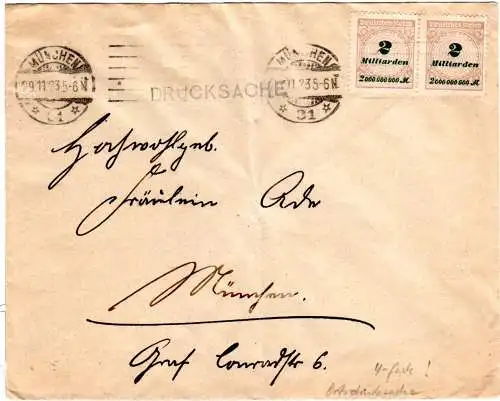 MÜNCHEN
29.11.23 5-6 N
* 31 *
DRUCKSACHE
MÜNCHEN
.11.23 5-6 N
* 31 *
Deutsches Reich
2
Milliarden
2 000 000 000 M
Deutsches Reich
2
Milliarden
2 000 000 000 M
Hochwohlgeb.
Fräulein Ade
München.
Graf Conradstr 6.
4-fach !
Ortsdrucksache